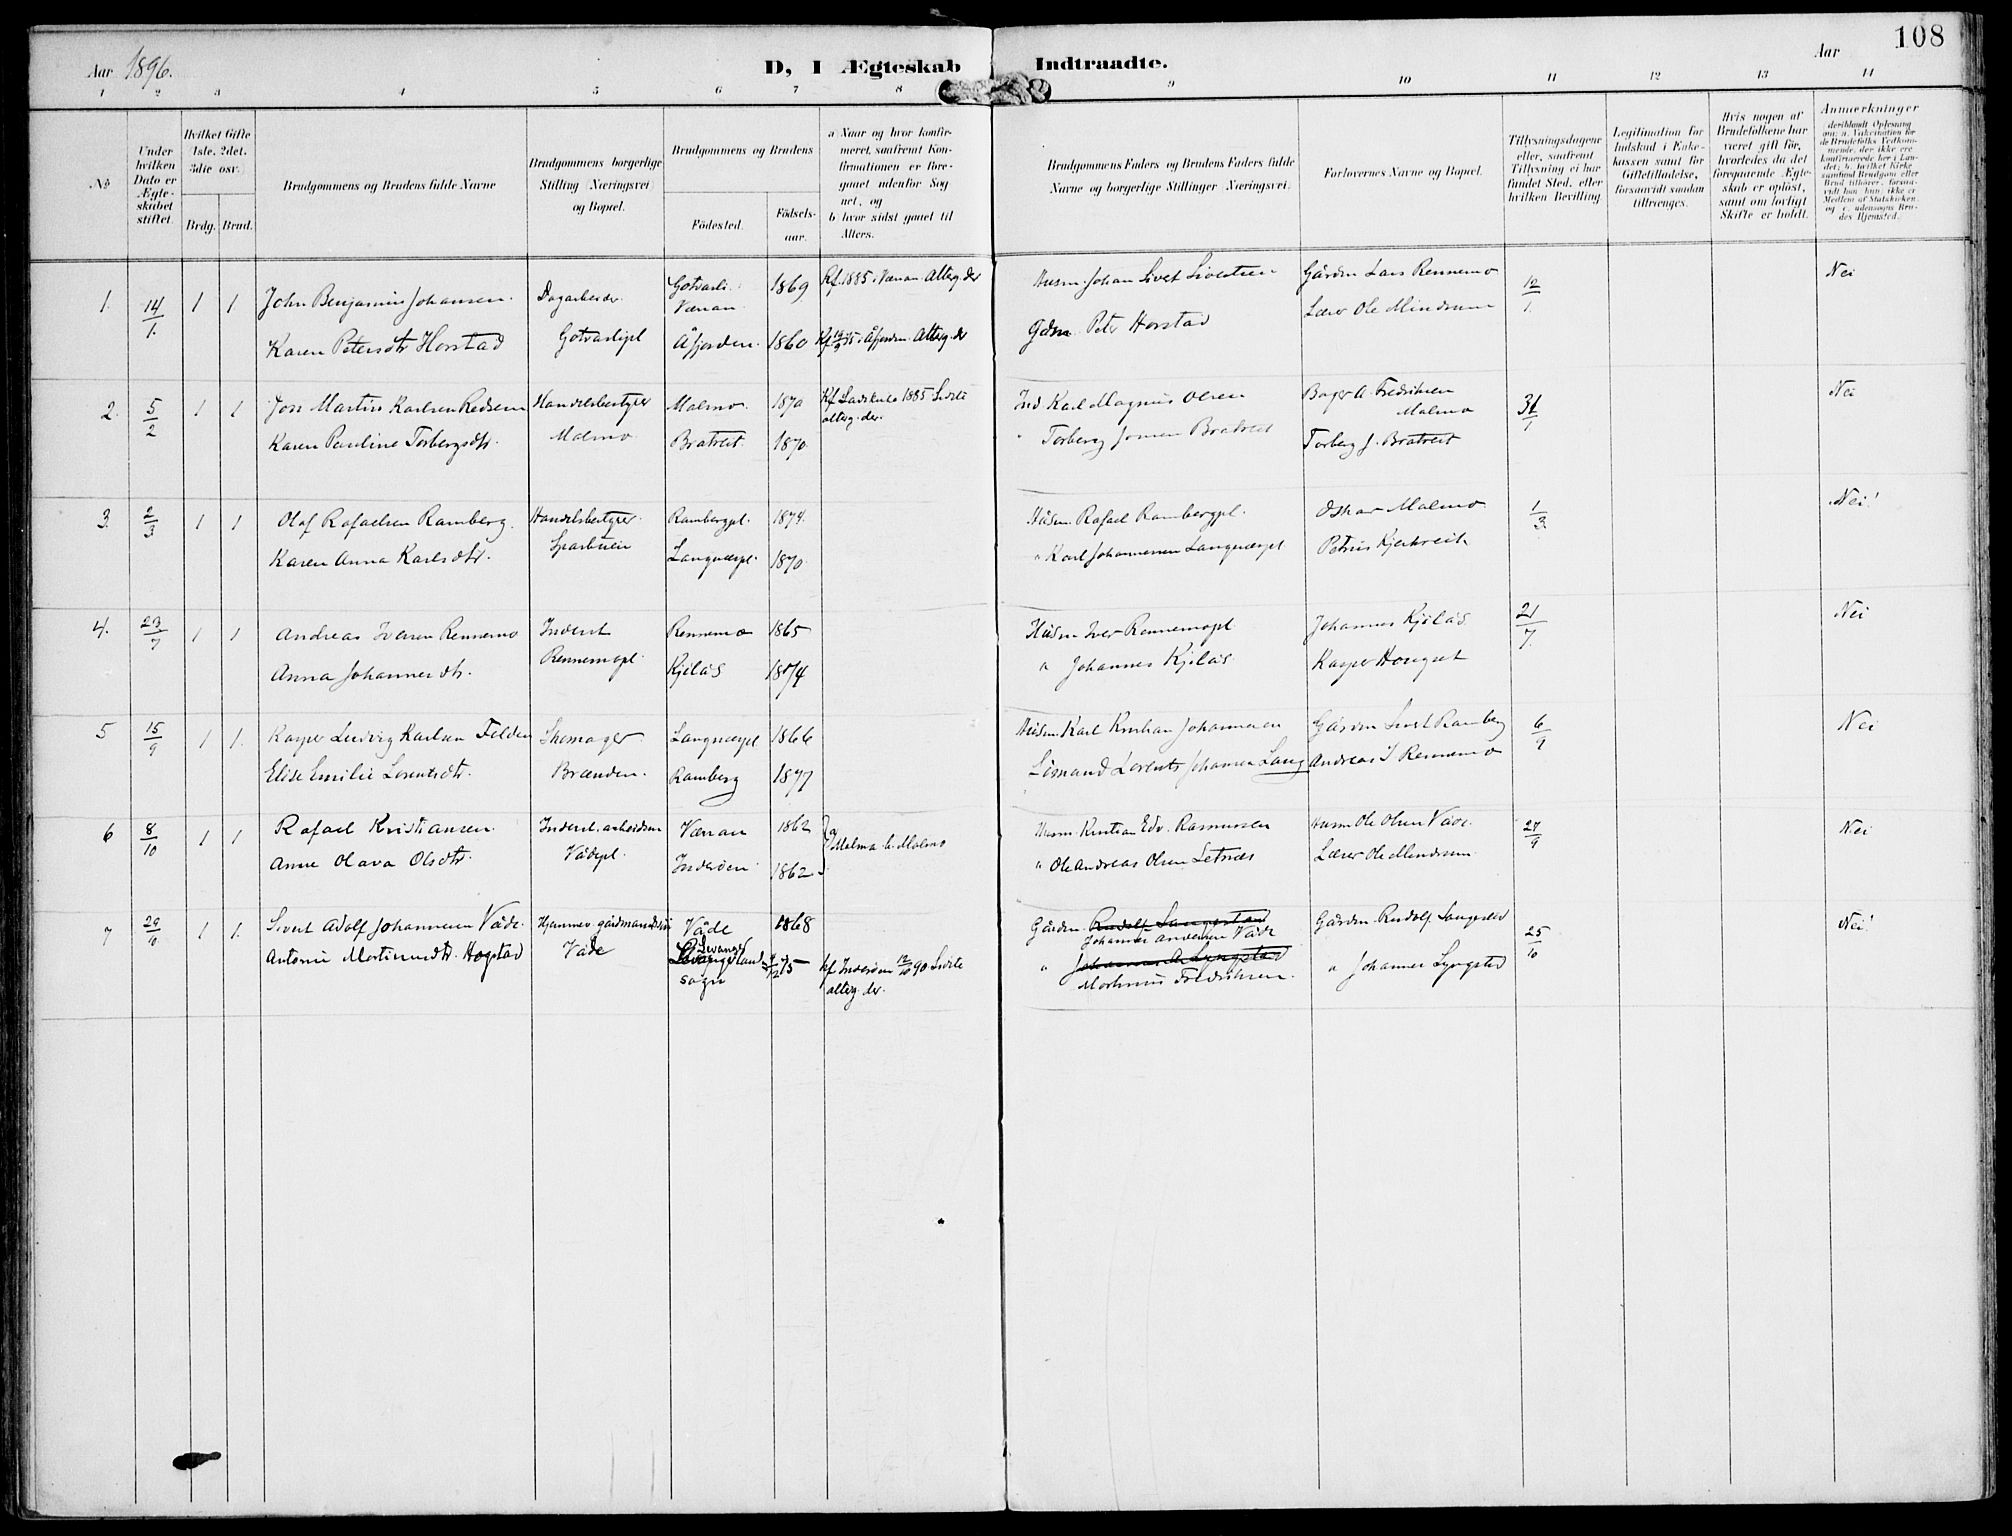 108
Aar 1896.
D, I Ægteskab Indtraadte.
Aar
1 2 3 4 5 6 7 8 9 10 11 12 13 14
No
Under hvilken Dato er Ægteskabet stiftet.
Hvilket Gifte 1ste, 2det, 3die osv.
Brdg. Brud.
Brudgommens og Brudens fulde Navne
Brudgommens borgerlige Stilling (Næringsvei) og Bopæl.
Brudgommens og Brudens
Födested.
Födselsaar.
a Naar og hvor konfirmeret, saafremt Konfirmationen er foregaaet udenfor Sognet, og
b hvor sidst gaaet til Alters.
Brudgommens Faders og Brudens Faders fulde Navne og borgerlige Stillinger (Næringsvei).
Forlovernes Navne og Bopæl.
Tillysningsdagene eller, saafremt Tillysning ei har fundet Sted, efter hvilken Bevilling
Legitimation for Indskud i Enkekassen samt for Giftetilladelse, forsaavidt saadan tiltrænges.
Hvis nogen af Brudefolkene har været gift för, hvorledes da det foregaaende Ægteskab er oplöst, samt om lovligt Skifte er holdt.
Anmærkninger
1. 14/1. 1 1 John Benjamin Johansen. Dagarbeider. Gotvasli. Værran 1869 Kf. 1885 i Værran Alterg. der Husm. Johan Sivert Sivertsen Gårdm Lars Rennemo 12/1. Nei
Karen Petersdtr Horstad Gotvaslipl Åfjorden. 1860 Åfjorden. Alterg. der Gdm. Peter Horstad Lærer Ole Mindrum
2. 5/2 1 1 Jon Martin Karlsen Handelsbestyrer Malmo. 1870 Kf. 1885 Sidste alterg. der. Ind Karl Magnus Olsen Bager A. Fredriksen Malmo 31/1 Nei
Karen Pauline Torbergsdtr. Malmo Bratreit 1870 " Torberg Jonsen Bratreit Torberg J. Bratreit
3. 2/3 1 1 Olaf Rafaelsen Ramberg. Handelsbestyrer. Rambergpl. 1874. Husm. Rafael Rambergpl. Oskar Malmo 1/3 Nei!
Karen Anna Karlsdtr. Sparbuein Langnæspl. 1870 " Karl Johannesen Langnæspl Petrus Kjerkreit
4. 23/7 1 1 Andreas Iversen Rennemo Inderst Rennemo 1865 Husm Iver Rennemopl Johannes Kjilås 21/7. Nei
Anna Johannesdtr. Rennemopl. Kjilås 1874 " Johannes Kjilås. Kasper Hougset
5 15/9 1 1. Kasper Ludvig Karlsen Folden Skomager. Langnæspl 1866 Husm. Karl Kristian Johannesen Gårdm Sivert Ramberg 6/9 Nei
Elise Emilie Lorentsdtr. Brænden. Ramberg 1877 Lorents Johansen Andreas I Rennemo
6 8/10 1 1 Rafael Kristiansen Inderst. arbeidsm Værran 1862 a Malmo b. Malmo Husm. Kristian Edv. Rasmussen Husm Ole Olsen Våde. 27/9 Nei
Anne Olava Olsdtr. Vådepl. Inderöen 1862 " Ole Andreas Olsen Letnæs Lærer Ole Mindrum
7 29/10 1 1. Sivert Adolf Johannesen Våde. Hjemmev. gårdmandssön Våde 1868 Gårdm. Rudolf Langestad Johannes Andersen Våde Gårdm. Rudolf Langestad 25/10 Nei!
Antonie Martinusdtr. Hogstad Våde Levanger landsogn 4/12 75 Kf. Inderöen 12/10 90 Sidste alterg. der. " Johannes A. Lyngstad Martinus Fredriksen. " Johannes Lyngstad